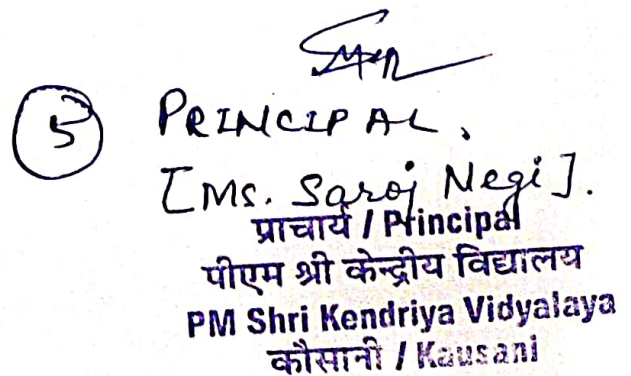 5 PRINCIPAL.
[Ms. Saroj Negi].
प्राचार्य / Principal
पीएम श्री केन्द्रीय विद्यालय
PM Shri Kendriya Vidyalaya
कौसानी / Kausani